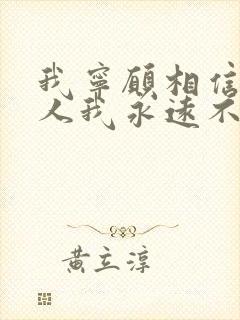 我寧願相信
人我永遠不
黃立淳